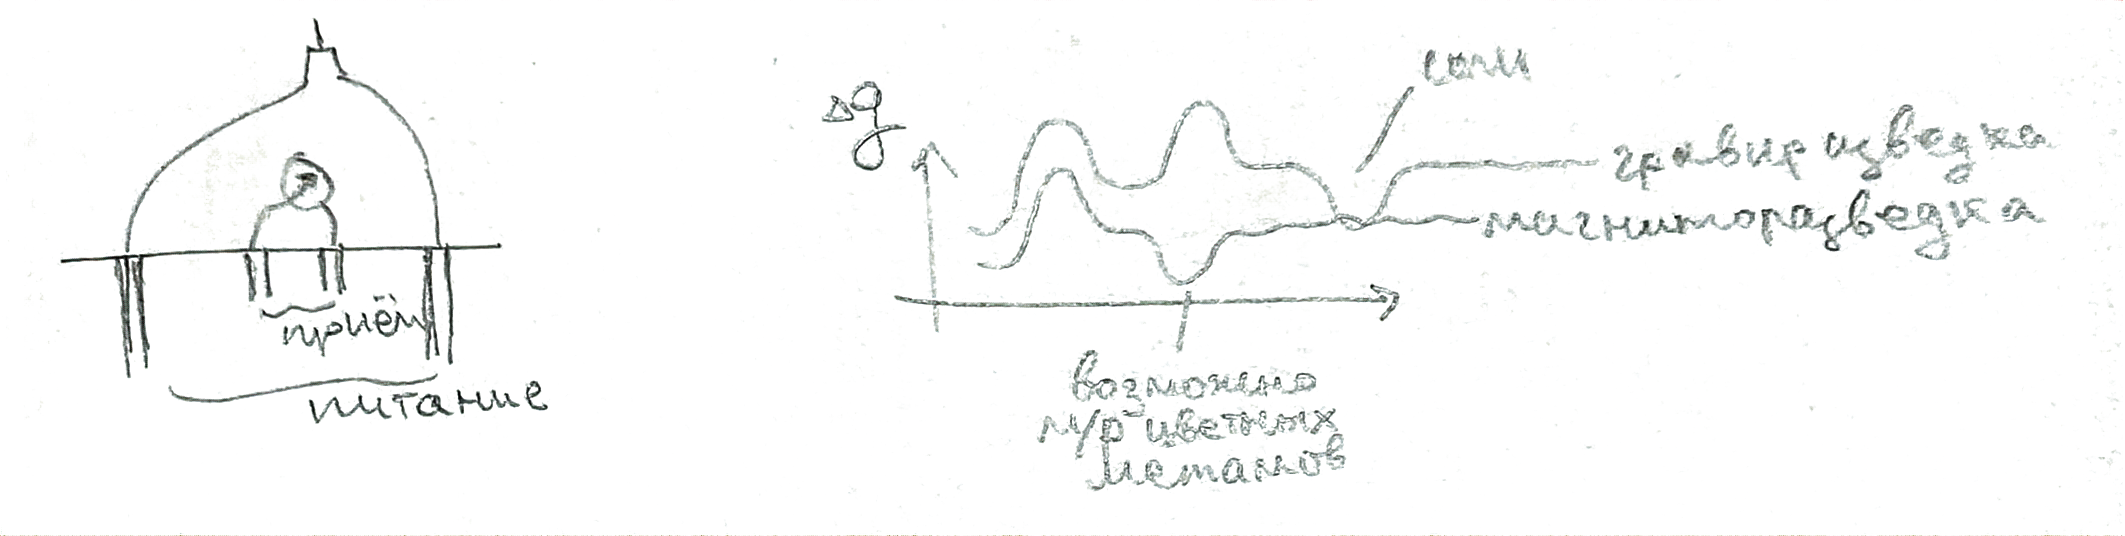 приём
питание
Δg
соли
гравиразведка
магниторазведка
возможно
м/р цветных
металлов